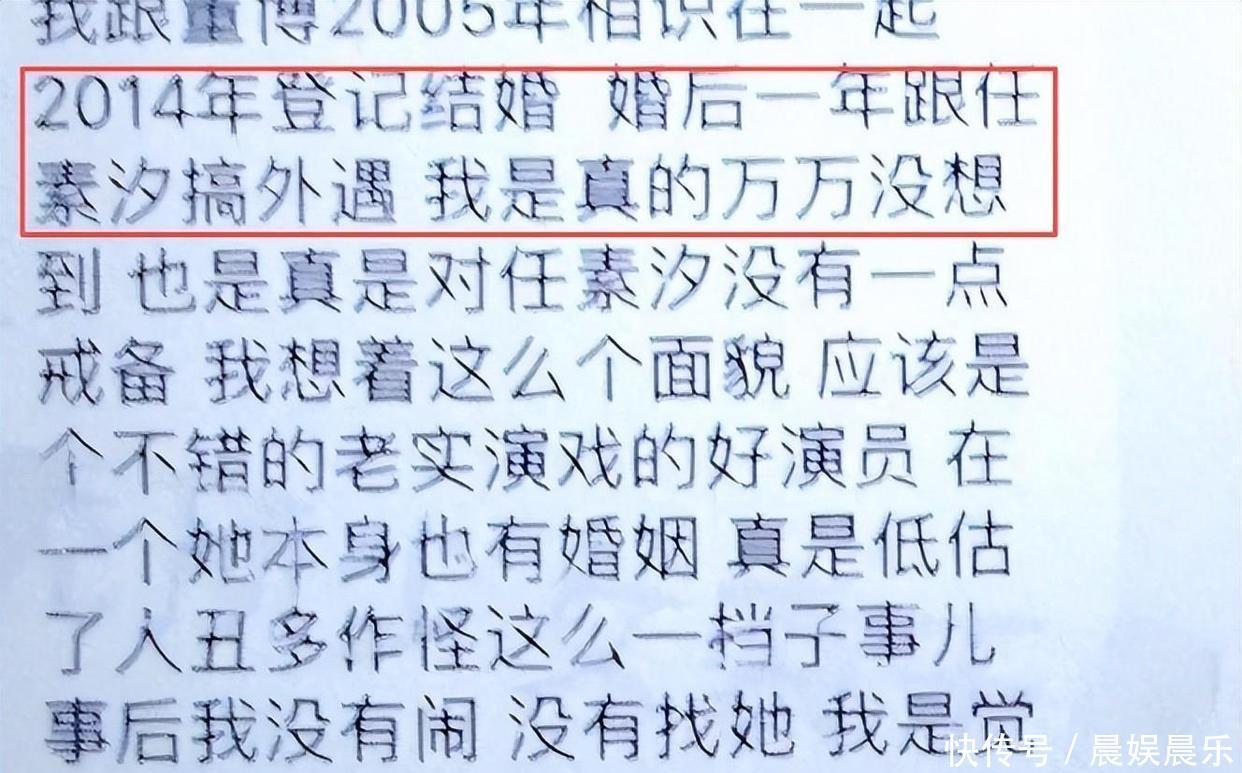 我跟董博2005年相识在一起
2014年登记结婚 婚后一年跟任
素汐搞外遇 我是真的万万没想
到 也是真是对任素汐没有一点
戒备 我想着这么个面貌 应该是
个不错的老实演戏的好演员 在
一个她本身也有婚姻 真是低估
了人丑多作怪这么一挡子事儿
事后我没有闹 没有找她 我是觉
快传号 / 晨娱晨乐